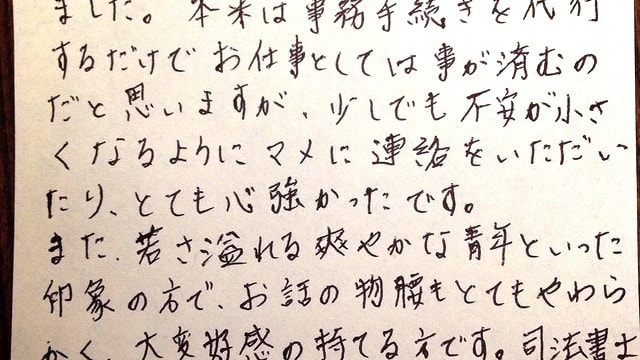 ました。本来は事務手続きを代行
するだけでお仕事としては事が済むの
だと思いますが、少しでも不安が小さ
くなるようにマメに連絡をいただい
たり、とても心強かったです。
また、若さ溢れる爽やかな青年といった
印象の方で、お話の物腰もとてもやわら
かく、大変好感の持てる方です。司法書士